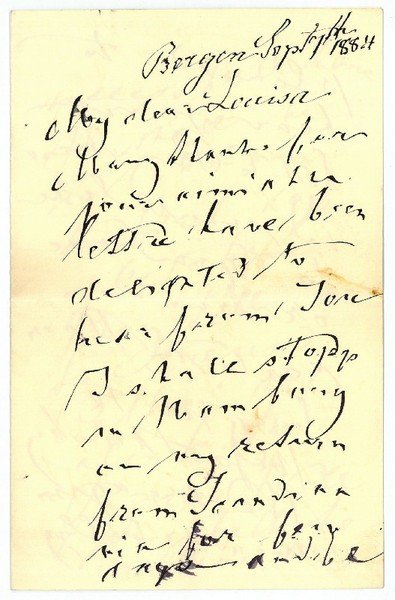 Bergen Sept 7th 1884
My dear Louisa
Many thanks for
your aimiable
lettre have been
delighted to
hear from you
I shall stopp
in Hamburg
on my return
from Scandina
via for few
days and be